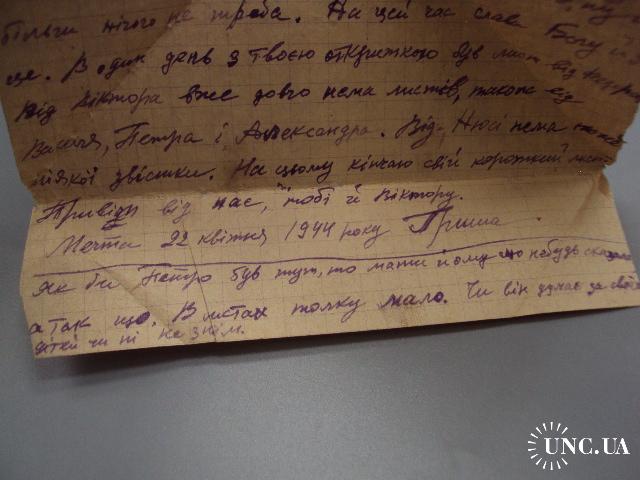 більги нічого не треба. На цей час слава Богу й
ще. В один день з твоєю открыткою був лист від
Від Віктора вже довго нема листів, також від
Василя, Петра і Александра. Від Нюсі нема
ніякої звістки. На цьому кінчаю свій короткий лист
Привіди від нас, тобі й Віктору.
Мечта 22 квітня 1944 року Гриша.
Як би Петро був тут, то мати йому що небудь сказала
а так що. В листах толку мало. Чи він думає за своїх
дітки чи ні не знаєм.
UNC.UA